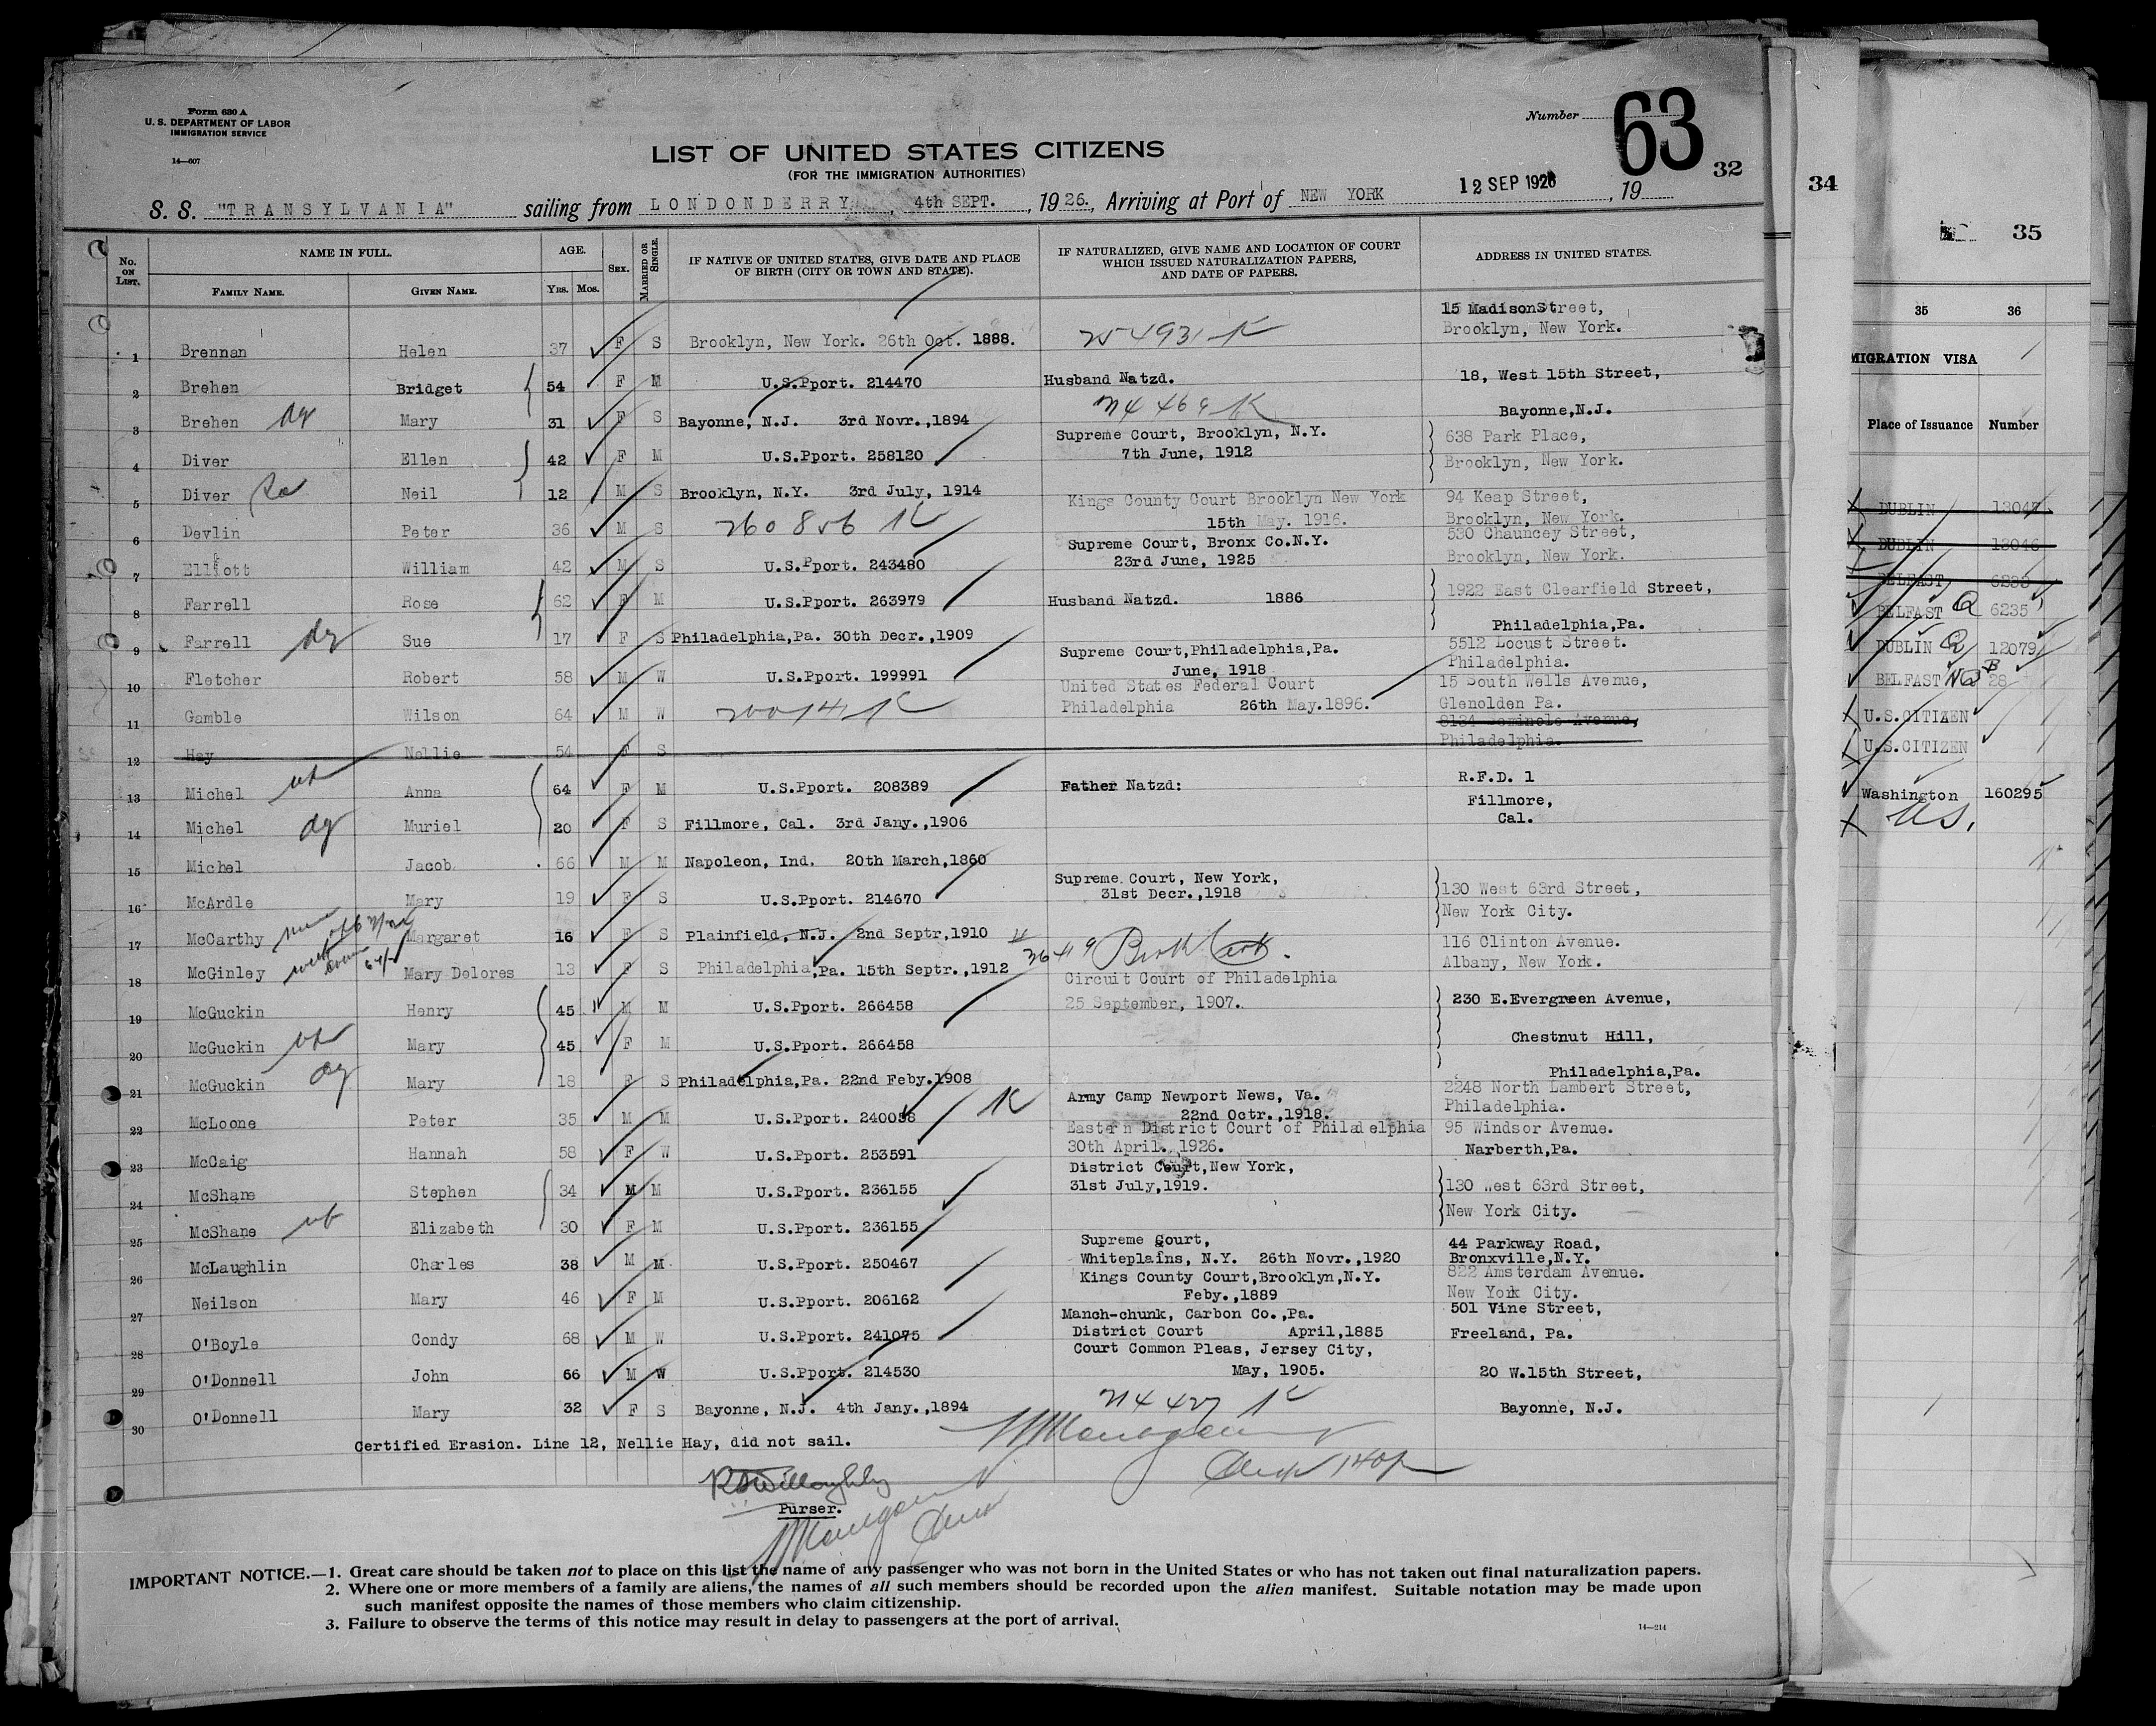 Form 630 A
U. S. DEPARTMENT OF LABOR
IMMIGRATION SERVICE
14—607
Number 63
32
LIST OF UNITED STATES CITIZENS
(FOR THE IMMIGRATION AUTHORITIES)
S. S. "TRANSYLVANIA" sailing from LONDONDERRY, 4th SEPT., 1926., Arriving at Port of NEW YORK 12 SEP 1926, 19
No. ON LIST. NAME IN FULL. AGE. SEX. MARRIED OR SINGLE. IF NATIVE OF UNITED STATES, GIVE DATE AND PLACE OF BIRTH (CITY OR TOWN AND STATE). IF NATURALIZED, GIVE NAME AND LOCATION OF COURT WHICH ISSUED NATURALIZATION PAPERS, AND DATE OF PAPERS. ADDRESS IN UNITED STATES.
FAMILY NAME. GIVEN NAME. YRS. MOS.
15 Madison Street,
Brooklyn, New York.
1 Brennan Helen 37 F S Brooklyn, New York. 26th Oct. 1888. 254931 K
2 Brehen Bridget 54 F M U.S.Pport. 214470 Husband Natzd. 18, West 15th Street,
214469 K
3 Brehen dg Mary 31 F S Bayonne, N.J. 3rd Novr.,1894 Bayonne,N.J.
Supreme Court, Brooklyn, N.Y. 638 Park Place,
4 Diver Ellen 42 F M U.S.Pport. 258120 7th June, 1912 Brooklyn, New York.
5 Diver Neil 12 M S Brooklyn, N.Y. 3rd July, 1914
Kings County Court Brooklyn New York 94 Keap Street,
6 Devlin Peter 36 M S 260856 K 15th May. 1916. Brooklyn, New York.
Supreme Court, Bronx Co.N.Y. 530 Chauncey Street,
7 Elliott William 42 M S U.S.Pport. 243480 23rd June, 1925 Brooklyn, New York.
8 Farrell Rose 62 F M U.S.Pport. 263979 Husband Natzd. 1886 1922 East Clearfield Street,
9 Farrell dg Sue 17 F S Philadelphia,Pa. 30th Decr.,1909 Philadelphia,Pa.
Supreme Court,Philadelphia,Pa. 5512 Locust Street.
10 Fletcher Robert 58 M W U.S.Pport. 199991 June, 1918 Philadelphia.
United States Federal Court 15 South Wells Avenue,
11 Gamble Wilson 64 M W 200141 K Philadelphia 26th May.1896. Glenolden Pa.
8134 Seminole Avenue,
12 Hay Nellie 54 F S Philadelphia.
13 Michel Anna 64 F M U.S.Pport. 208389 Father Natzd: R.F.D. 1
Fillmore,
14 Michel dg Muriel 20 F S Fillmore, Cal. 3rd Jany.,1906 Cal.
15 Michel Jacob 66 M M Napoleon, Ind. 20th March,1860
Supreme Court, New York, 130 West 63rd Street,
16 McArdle Mary 19 F S U.S.Pport. 214670 31st Decr.,1918 New York City.
17 McCarthy Margaret 16 F S Plainfield, N.J. 2nd Septr,1910 116 Clinton Avenue.
18 McGinley Mary Delores 13 F S Philadelphia,Pa. 15th Septr.,1912 Albany, New York.
Circuit Court of Philadelphia
19 McGuckin Henry 45 M M U.S.Pport. 266458 25 September, 1907. 230 E.Evergreen Avenue,
20 McGuckin Mary 45 F M U.S.Pport. 266458 Chestnut Hill,
21 McGuckin dg Mary 18 F S Philadelphia,Pa. 22nd Feby.1908 Philadelphia,Pa.
Army Camp Newport News, Va. 2248 North Lambert Street,
22 McLoone Peter 35 M M U.S.Pport. 240038 K 22nd Octr.,1918. Philadelphia.
Eastern District Court of Philadelphia 95 Windsor Avenue.
23 McCaig Hannah 58 F W U.S.Pport. 253591 30th April. 1926. Narberth,Pa.
District Court,New York,
24 McShane Stephen 34 M M U.S.Pport. 236155 31st July,1919. 130 West 63rd Street,
25 McShane Elizabeth 30 F M U.S.Pport. 236155 New York City.
Supreme Court, 44 Parkway Road,
26 McLaughlin Charles 38 M M U.S.Pport. 250467 Whiteplains, N.Y. 26th Novr.,1920 Bronxville,N.Y.
Kings County Court,Brooklyn,N.Y. 822 Amsterdam Avenue.
27 Neilson Mary 46 F M U.S.Pport. 206162 Feby.,1889 New York City.
Manch-chunk, Carbon Co.,Pa. 501 Vine Street,
28 O'Boyle Condy 68 M W U.S.Pport. 241075 District Court April,1885 Freeland, Pa.
Court Common Pleas, Jersey City,
29 O'Donnell John 66 M W U.S.Pport. 214530 May, 1905. 20 W.15th Street,
30 O'Donnell Mary 32 F S Bayonne, N.J. 4th Jany.,1894 Bayonne, N.J.
Certified Erasion. Line 12, Nellie Hay, did not sail.
Purser.
IMPORTANT NOTICE.—1. Great care should be taken not to place on this list the name of any passenger who was not born in the United States or who has not taken out final naturalization papers.
2. Where one or more members of a family are aliens, the names of all such members should be recorded upon the alien manifest. Suitable notation may be made upon
such manifest opposite the names of those members who claim citizenship.
3. Failure to observe the terms of this notice may result in delay to passengers at the port of arrival.
14—214
34
35
35 36
MIGRATION VISA
Place of Issuance Number
DUBLIN 13047
DUBLIN 13046
BELFAST 6233
BELFAST Q 6235
DUBLIN Q 12079
BELFAST 28
U.S.CITIZEN
U.S.CITIZEN
Washington 160295
US.